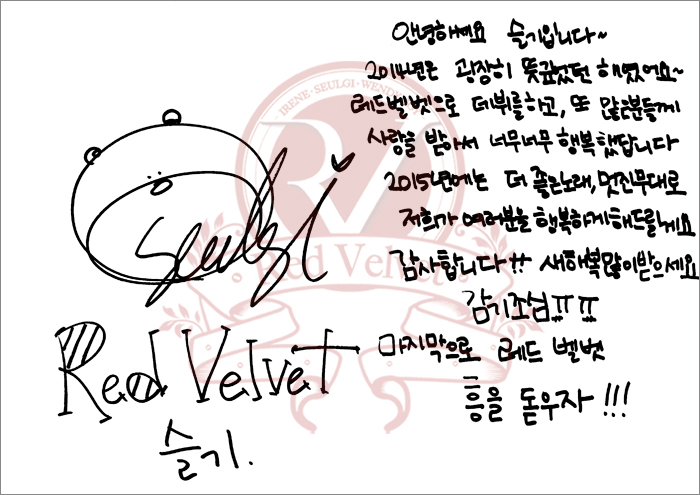 안녕하세요 슬기입니다~
2014년은 굉장히 뜻깊었던 해였어요~
레드벨벳으로 데뷔를하고, 또 많은분들께
사랑을 받아서 너무너무 행복했답니다
2015년에는 더 좋은노래, 멋진무대로
저희가 여러분을 행복하게해드릴게요
감사합니다!! 새해복많이받으세요
감기조심ㅠㅠ
마지막으로 레드 벨벳
흥을 돋우자!!!
IRENE · SEULGI · WENDY
RV
Red Velvet
Seulgi
Red Velvet
슬기.